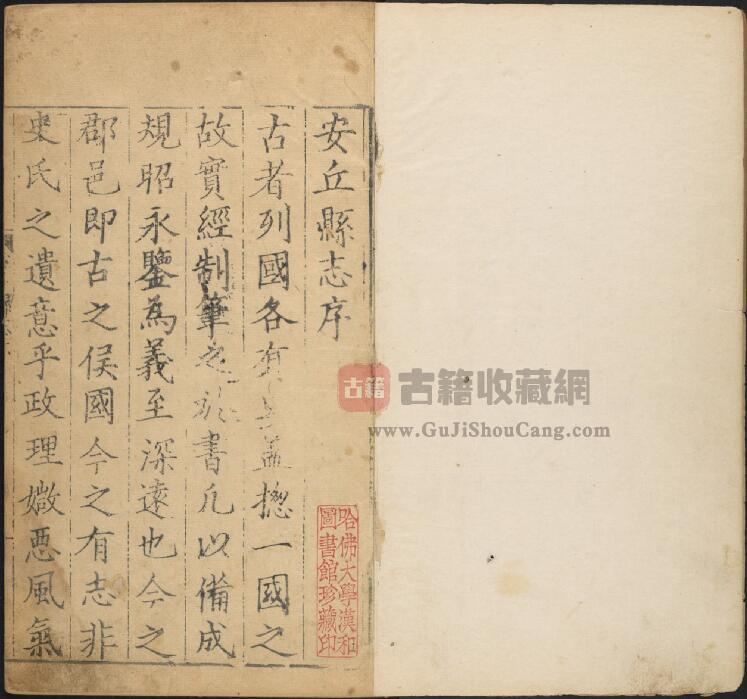 安丘縣志序
古者列國各有盖揔一國之
故實經制筆之於書凡以備成
規昭永鑒為義至深遠也今之
郡邑即古之侯國今之有志非
史氏之遺意乎政理媺悪風氣
哈佛大學漢和
圖書館珍藏印
古籍
古籍收藏網
www.GuJiShouCang.com